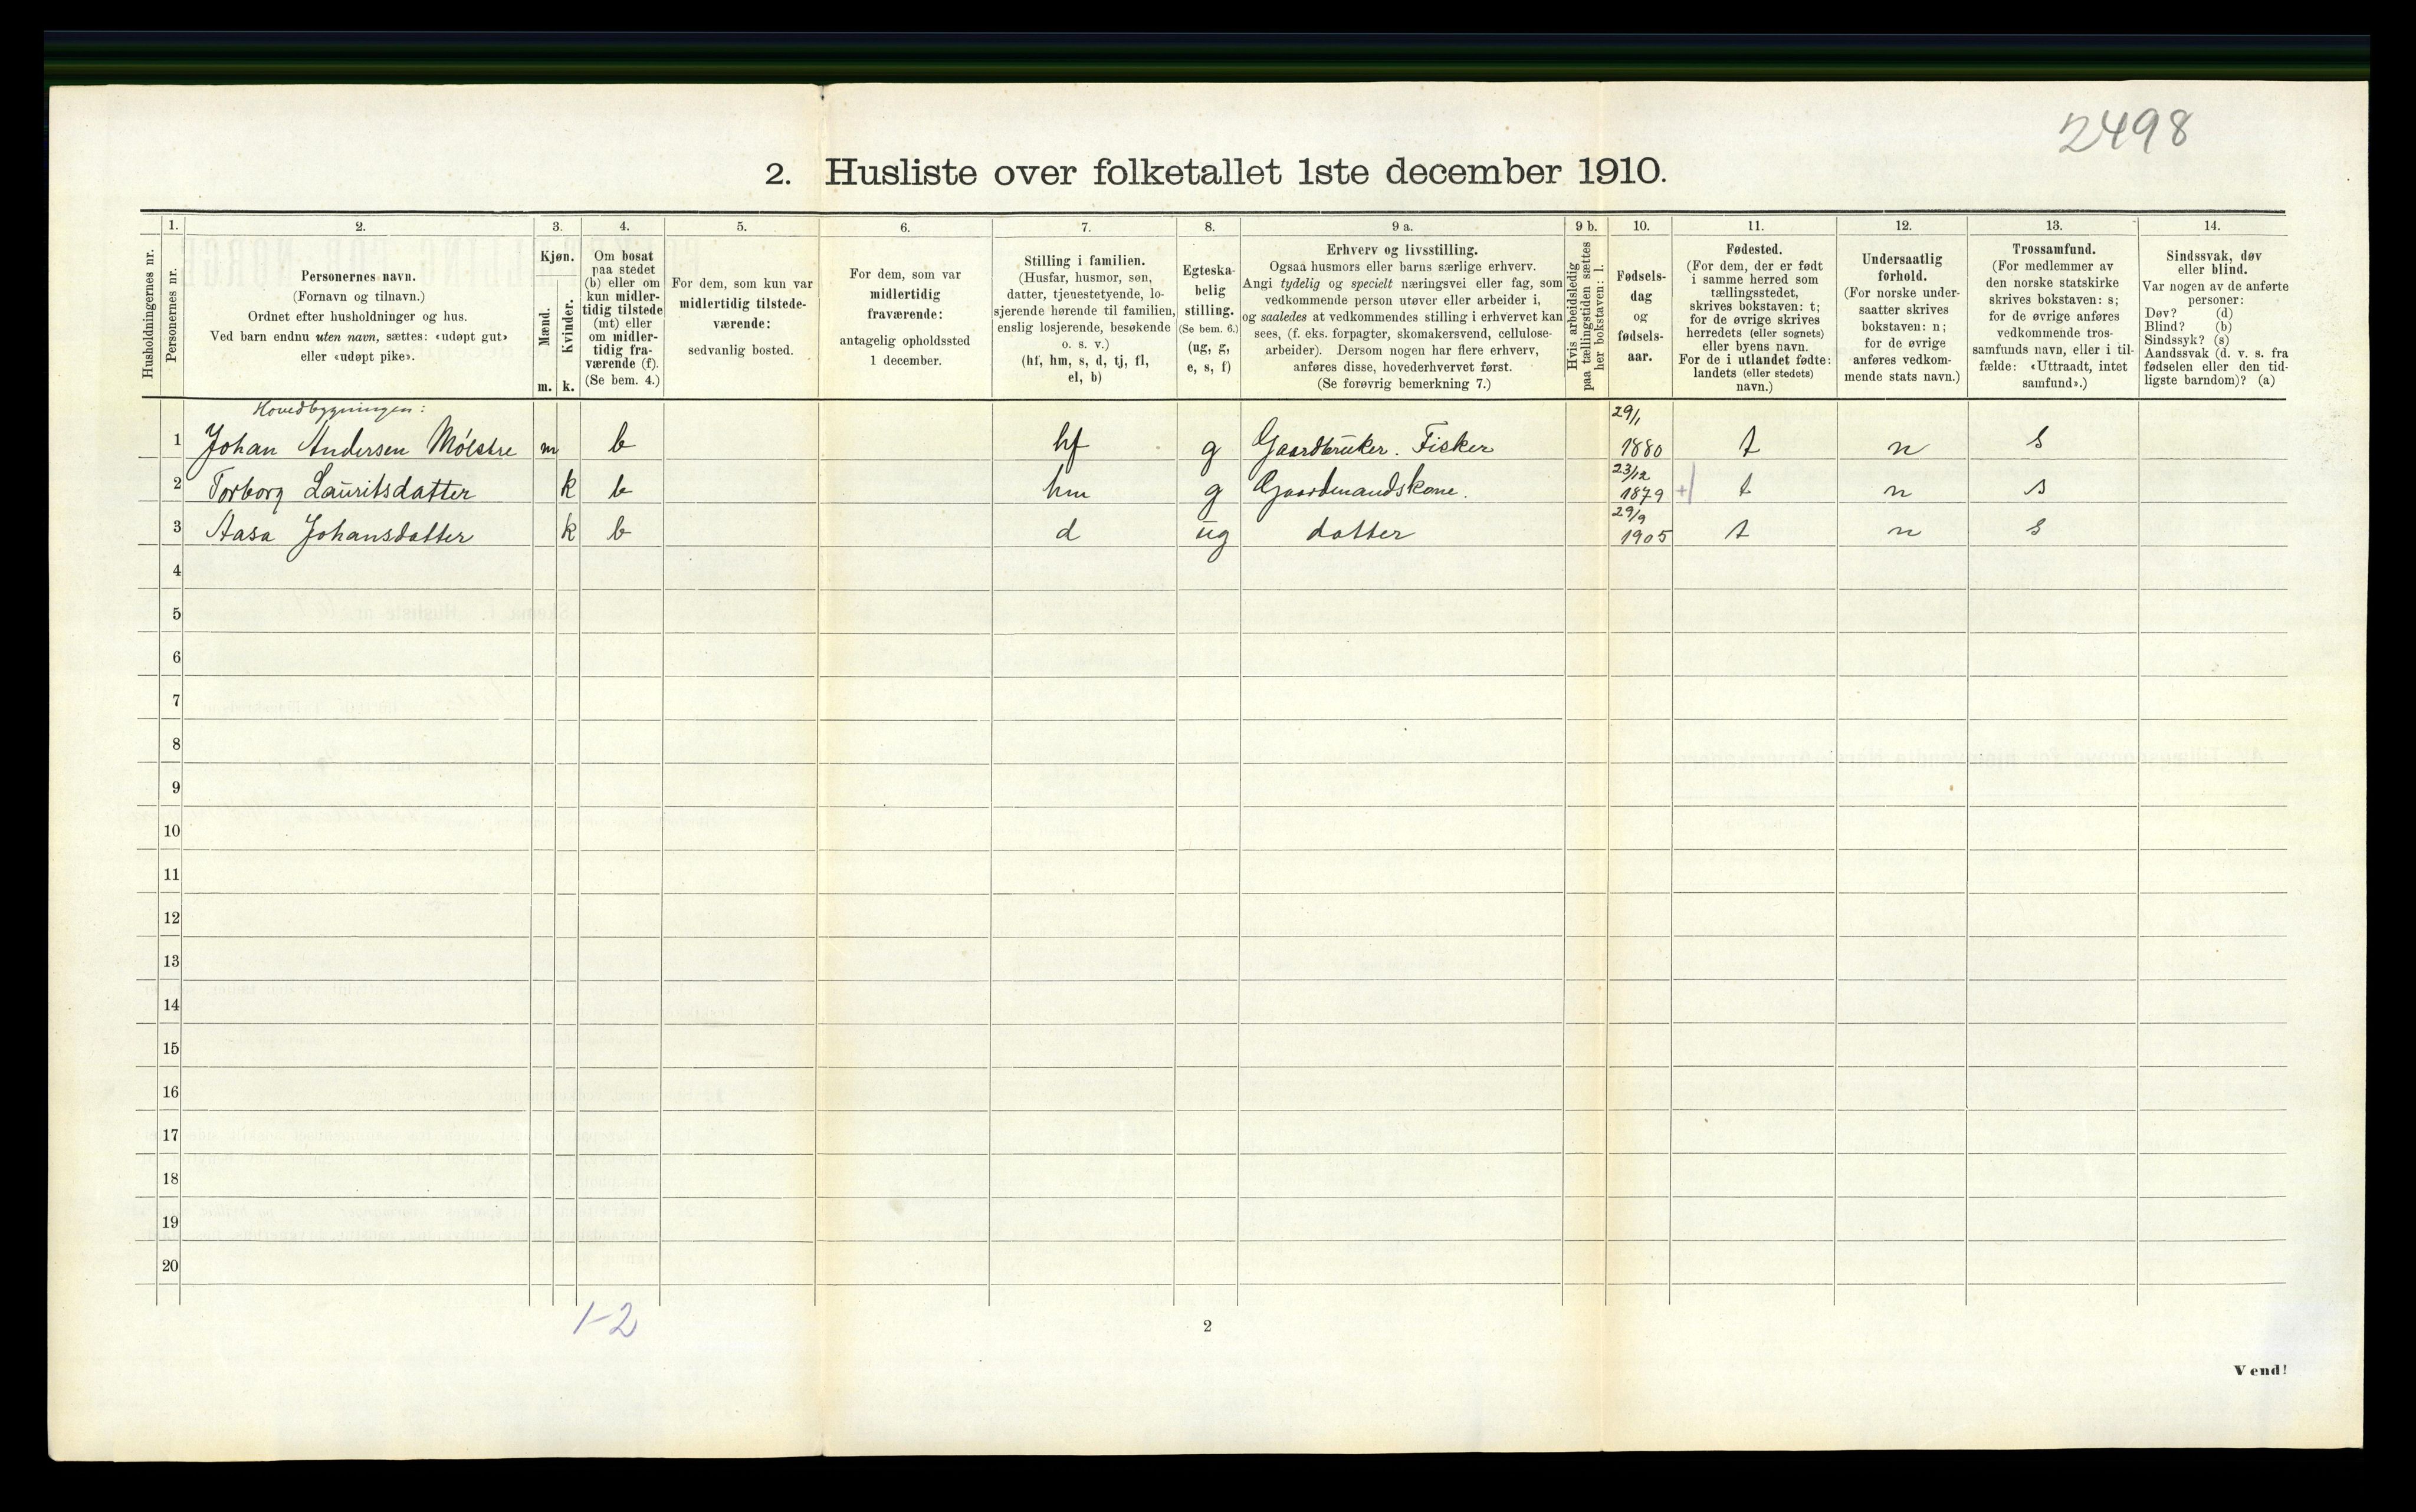 2498
2. Husliste over folketallet 1ste december 1910.
Husholdningernes nr.
1.
Personernes nr.
2.
Personernes navn.
(Fornavn og tilnavn.)
Ordnet efter husholdninger og hus.
Ved barn endnu uten navn, sættes: «udøpt gut»
eller «udøpt pike».
3.
Kjøn.
Mænd.
Kvinder.
m. k.
4.
Om bosat
paa stedet
(b) eller om
kun midler-
tidig tilstede
(mt) eller
om midler-
tidig fra-
værende (f).
(Se bem. 4.)
5.
For dem, som kun var
midlertidig tilstede-
værende:
sedvanlig bosted.
6.
For dem, som var
midlertidig
fraværende:
antagelig opholdssted
1 december.
7.
Stilling i familien.
(Husfar, husmor, søn,
datter, tjenestetyende, lo-
sjerende hørende til familien,
enslig losjerende, besøkende
o. s. v.)
(hf, hm, s, d, tj, fl,
el, b)
8.
Egteska-
belig
stilling.
(Se bem. 6.)
(ug, g,
e, s, f)
9 a.
Erhverv og livsstilling.
Ogsaa husmors eller barns særlige erhverv.
Angi tydelig og specielt næringsvei eller fag, som
vedkommende person utøver eller arbeider i,
og saaledes at vedkommendes stilling i erhvervet kan
sees, (f. eks. forpagter, skomakersvend, cellulose-
arbeider). Dersom nogen har flere erhverv,
anføres disse, hovederhvervet først.
(Se forøvrig bemerkning 7.)
9 b.
Hvis arbeidsledig
paa tællingstiden sættes
her bokstaven: l.
10.
Fødsels-
dag
og
fødsels-
aar.
11.
Fødested.
(For dem, der er født
i samme herred som
tællingsstedet,
skrives bokstaven: t;
for de øvrige skrives
herredets (eller sognets)
eller byens navn.
For de i utlandet fødte:
landets (eller stedets)
navn.)
12.
Undersaatlig
forhold.
(For norske under-
saatter skrives
bokstaven: n;
for de øvrige
anføres vedkom-
mende stats navn.)
13.
Trossamfund.
(For medlemmer av
den norske statskirke
skrives bokstaven: s;
for de øvrige anføres
vedkommende tros-
samfunds navn, eller i til-
fælde: «Uttraadt, intet
samfund».)
14.
Sindssvak, døv
eller blind.
Var nogen av de anførte
personer:
Døv? (d)
Blind? (b)
Sindssyk? (s)
Aandssvak (d. v. s. fra
fødselen eller den tid-
ligste barndom)? (a)
Hovedbygningen:
1 Johan Andersen Mølstre m b hf g Gaardbruker. Fisker 29/1 1880 t n s
2 Torborg Lauritsdatter k b hm g Gaardmandskone. 23/12 1879 + t n s
3 Aasa Johansdatter k b d ug datter 29/9 1905 t n s
4
5
6
7
8
9
10
11
12
13
14
15
16
17
18
19
20
1-2
2
Vend!